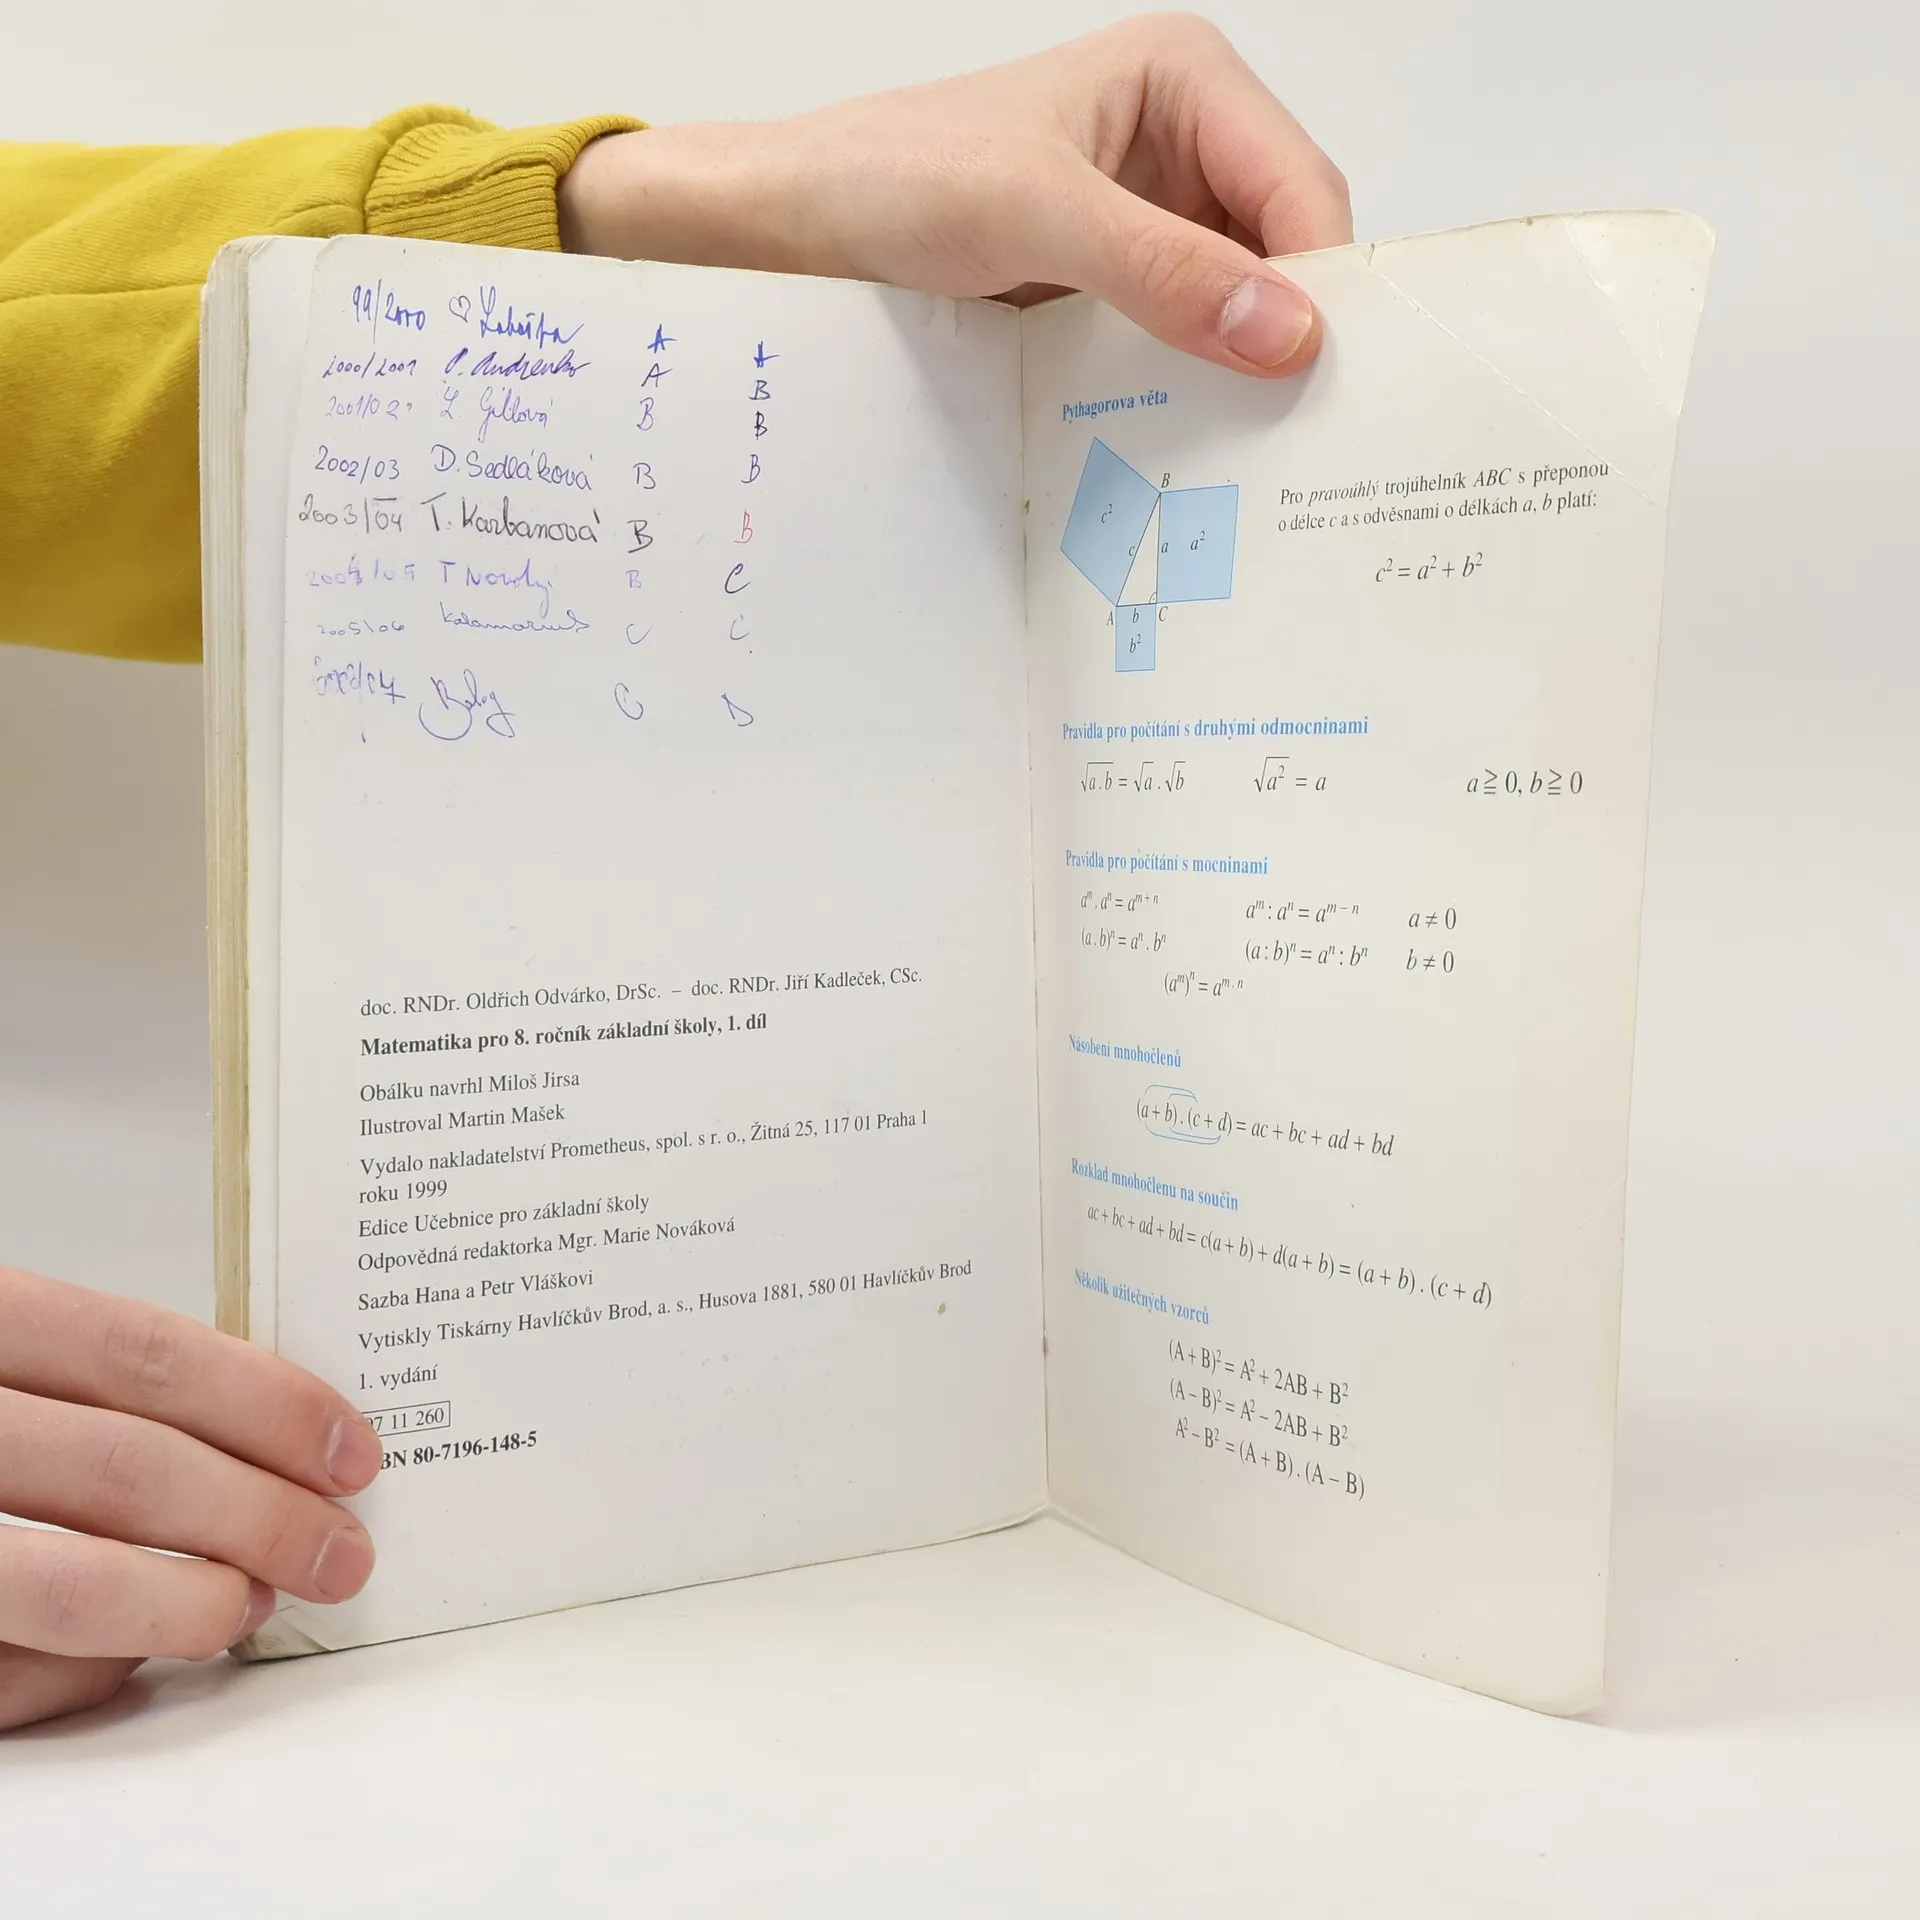 99/2000 ♡ A A
2000/2001 P. Andrenko A B
2001/02 Z. Gillová B B
2002/03 D. Sedláková B B
2003/04 T. Karbanová B B
2004/05 T Novotny B C
2005/06 C C
06/07 Balog C D
doc. RNDr. Oldřich Odvárko, DrSc. – doc. RNDr. Jiří Kadleček, CSc.
Matematika pro 8. ročník základní školy, 1. díl
Obálku navrhl Miloš Jirsa
Ilustroval Martin Mašek
Vydalo nakladatelství Prometheus, spol. s r. o., Žitná 25, 117 01 Praha 1
roku 1999
Edice Učebnice pro základní školy
Odpovědná redaktorka Mgr. Marie Nováková
Sazba Hana a Petr Vláškovi
Vytiskly Tiskárny Havlíčkův Brod, a. s., Husova 1881, 580 01 Havlíčkův Brod
1. vydání
07 11 260
BN 80-7196-148-5
Pythagorova věta
B
c² c a a²
A b C
b²
Pro pravoúhlý trojúhelník ABC s přeponou
o délce c a s odvěsnami o délkách a, b platí:
c² = a² + b²
Pravidla pro počítání s druhými odmocninami
√a.b = √a . √b √a² = a a ≧ 0, b ≧ 0
Pravidla pro počítání s mocninami
aᵐ . aⁿ = aᵐ⁺ⁿ aᵐ : aⁿ = aᵐ⁻ⁿ a ≠ 0
(a . b)ⁿ = aⁿ . bⁿ (a : b)ⁿ = aⁿ : bⁿ b ≠ 0
(aᵐ)ⁿ = aᵐ·ⁿ
Násobení mnohočlenů
(a + b) . (c + d) = ac + bc + ad + bd
Rozklad mnohočlenu na součin
ac + bc + ad + bd = c(a + b) + d(a + b) = (a + b) . (c + d)
Několik užitečných vzorců
(A + B)² = A² + 2AB + B²
(A – B)² = A² – 2AB + B²
A² – B² = (A + B) . (A – B)